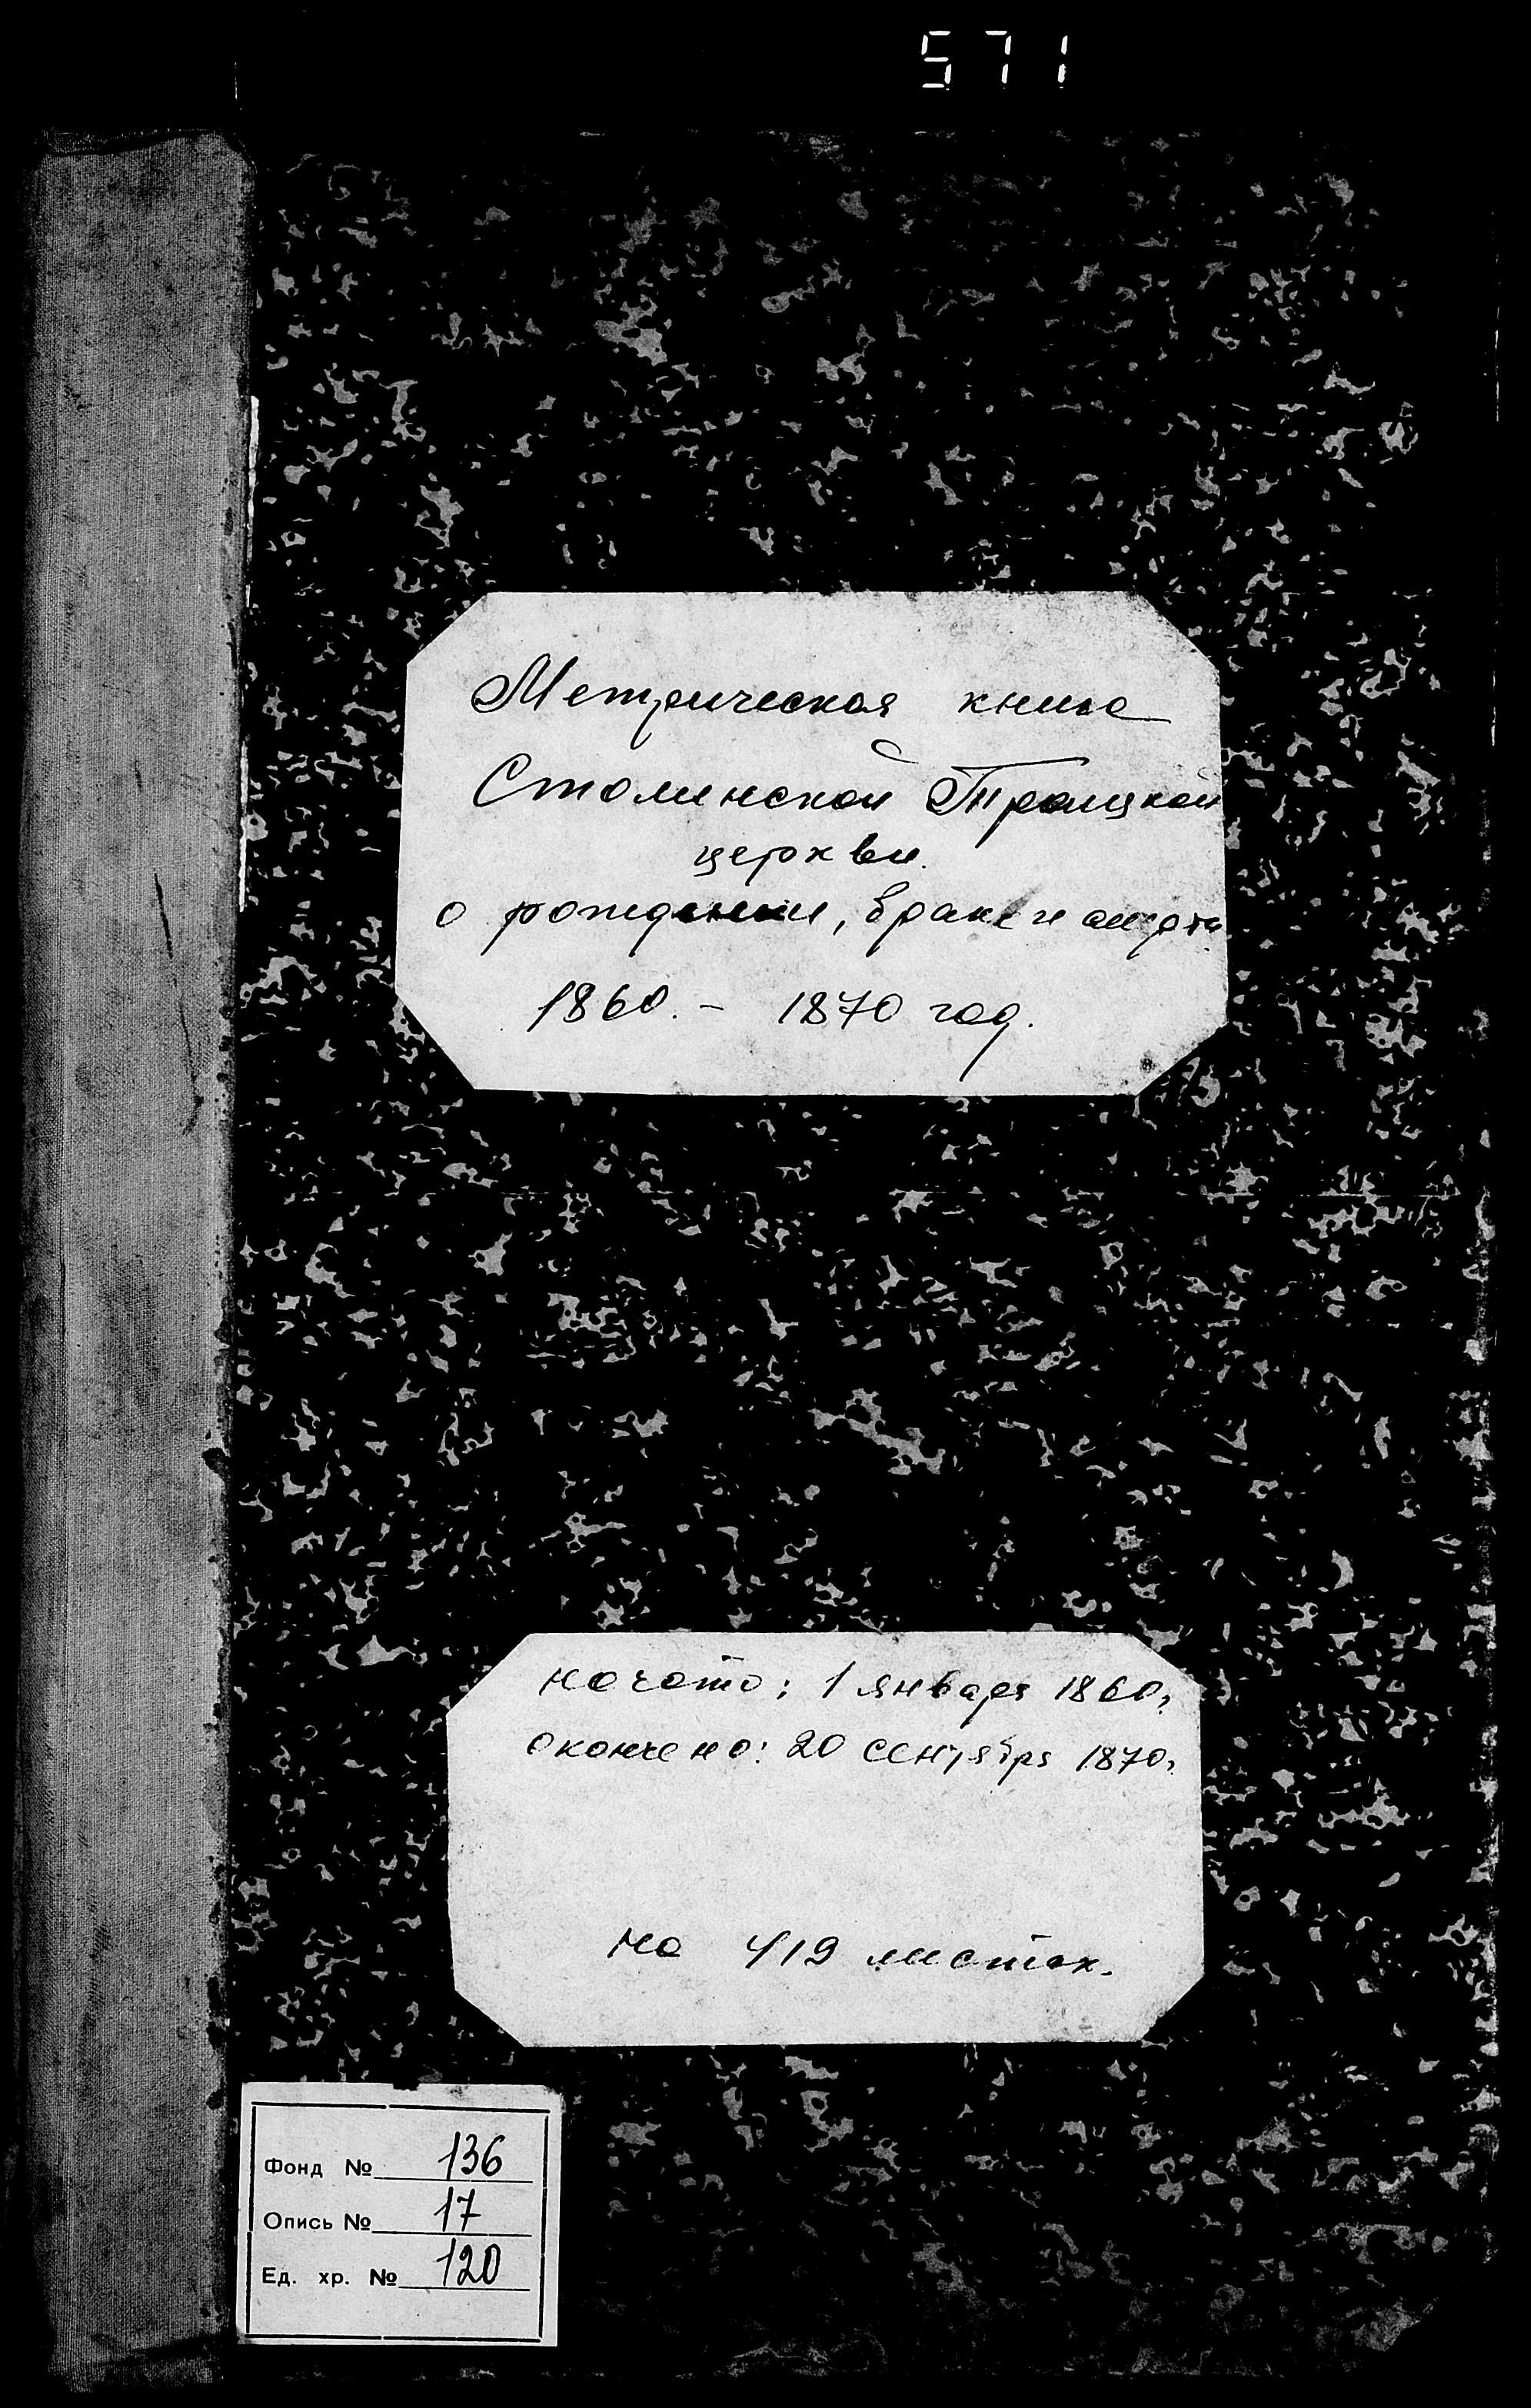 571
Метрическая книга
Столинской Троицкой
церкви.
о рождении, браке и смерти
1860. - 1870 год.
начато: 1 января 1860г
окончено: 20 сентября 1870г
на 419 листах.
Фонд № 136
Опись № 17
Ед. хр. № 120